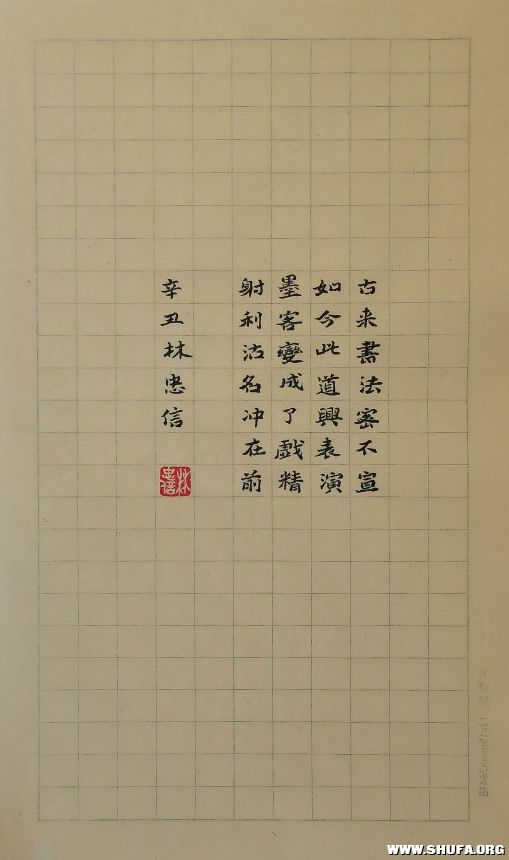 古来書法密不宣
如今此道興表演
墨客變成了戲精
射利沽名冲在前
辛丑林忠信
林忠信
WWW.SHUFA.ORG